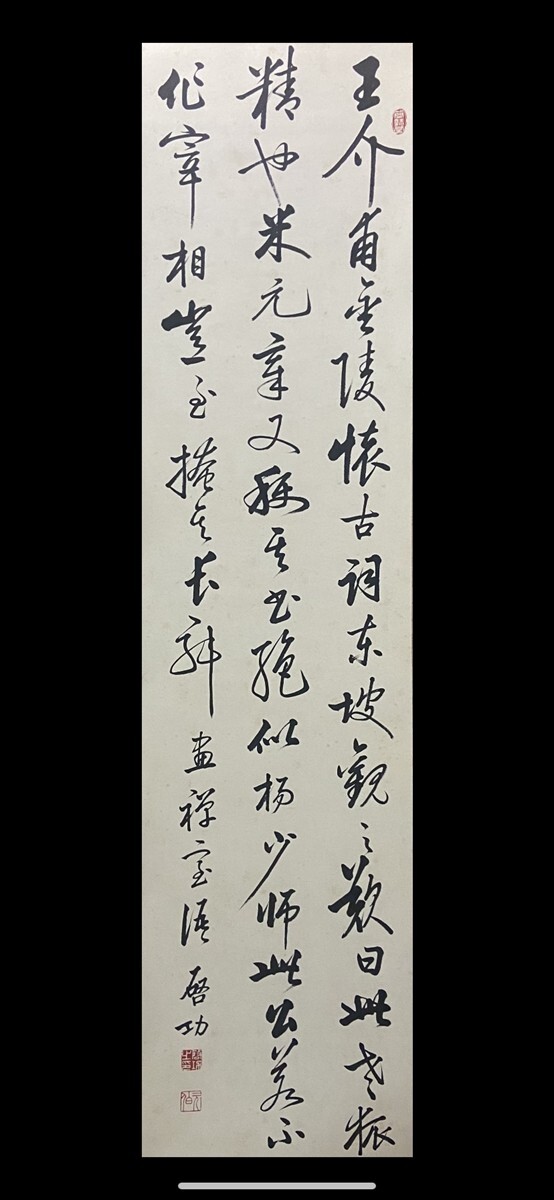 王介甫金陵懷古词东坡觀之歎曰此老狐
精也米元章又稱其书绝似杨少师此公若不
作宰相豈至掩其长耶
画禅室语 启功